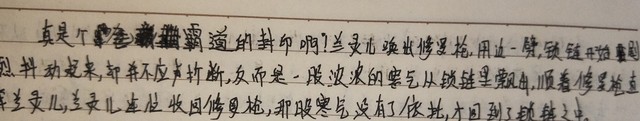 真是个霸道的封印啊!兰灵儿唤出修罗枪,用边一劈,锁链开始剧
烈抖动起来,却并不应声折断,反而是一股浓浓的寒气从锁链里飘出,顺着修罗枪直
兰灵儿,兰灵儿连忙收回修罗枪,那股寒气没有了依托,才回到了锁链之中。